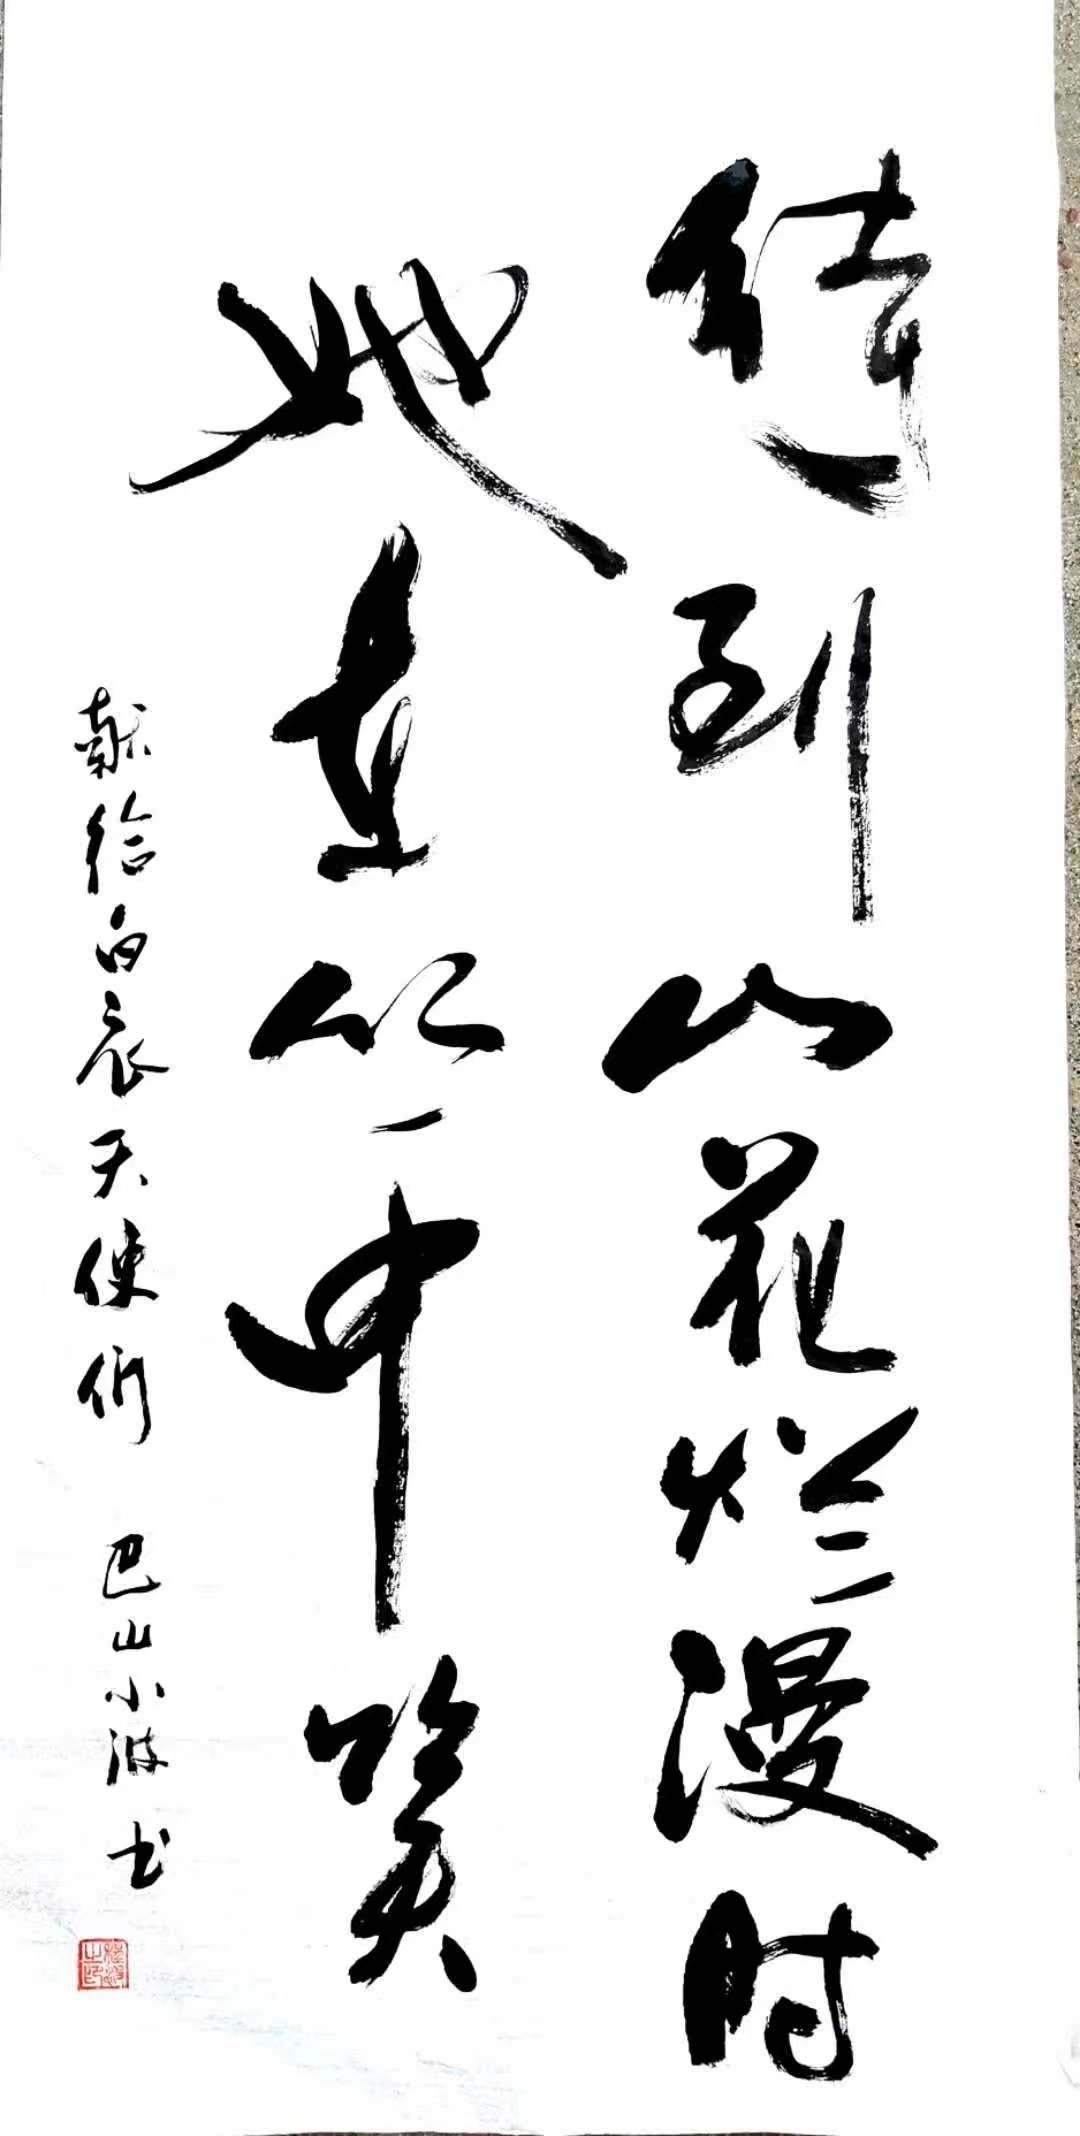 待到山花烂漫时
她在丛中笑
献给白衣天使们 巴山小波书